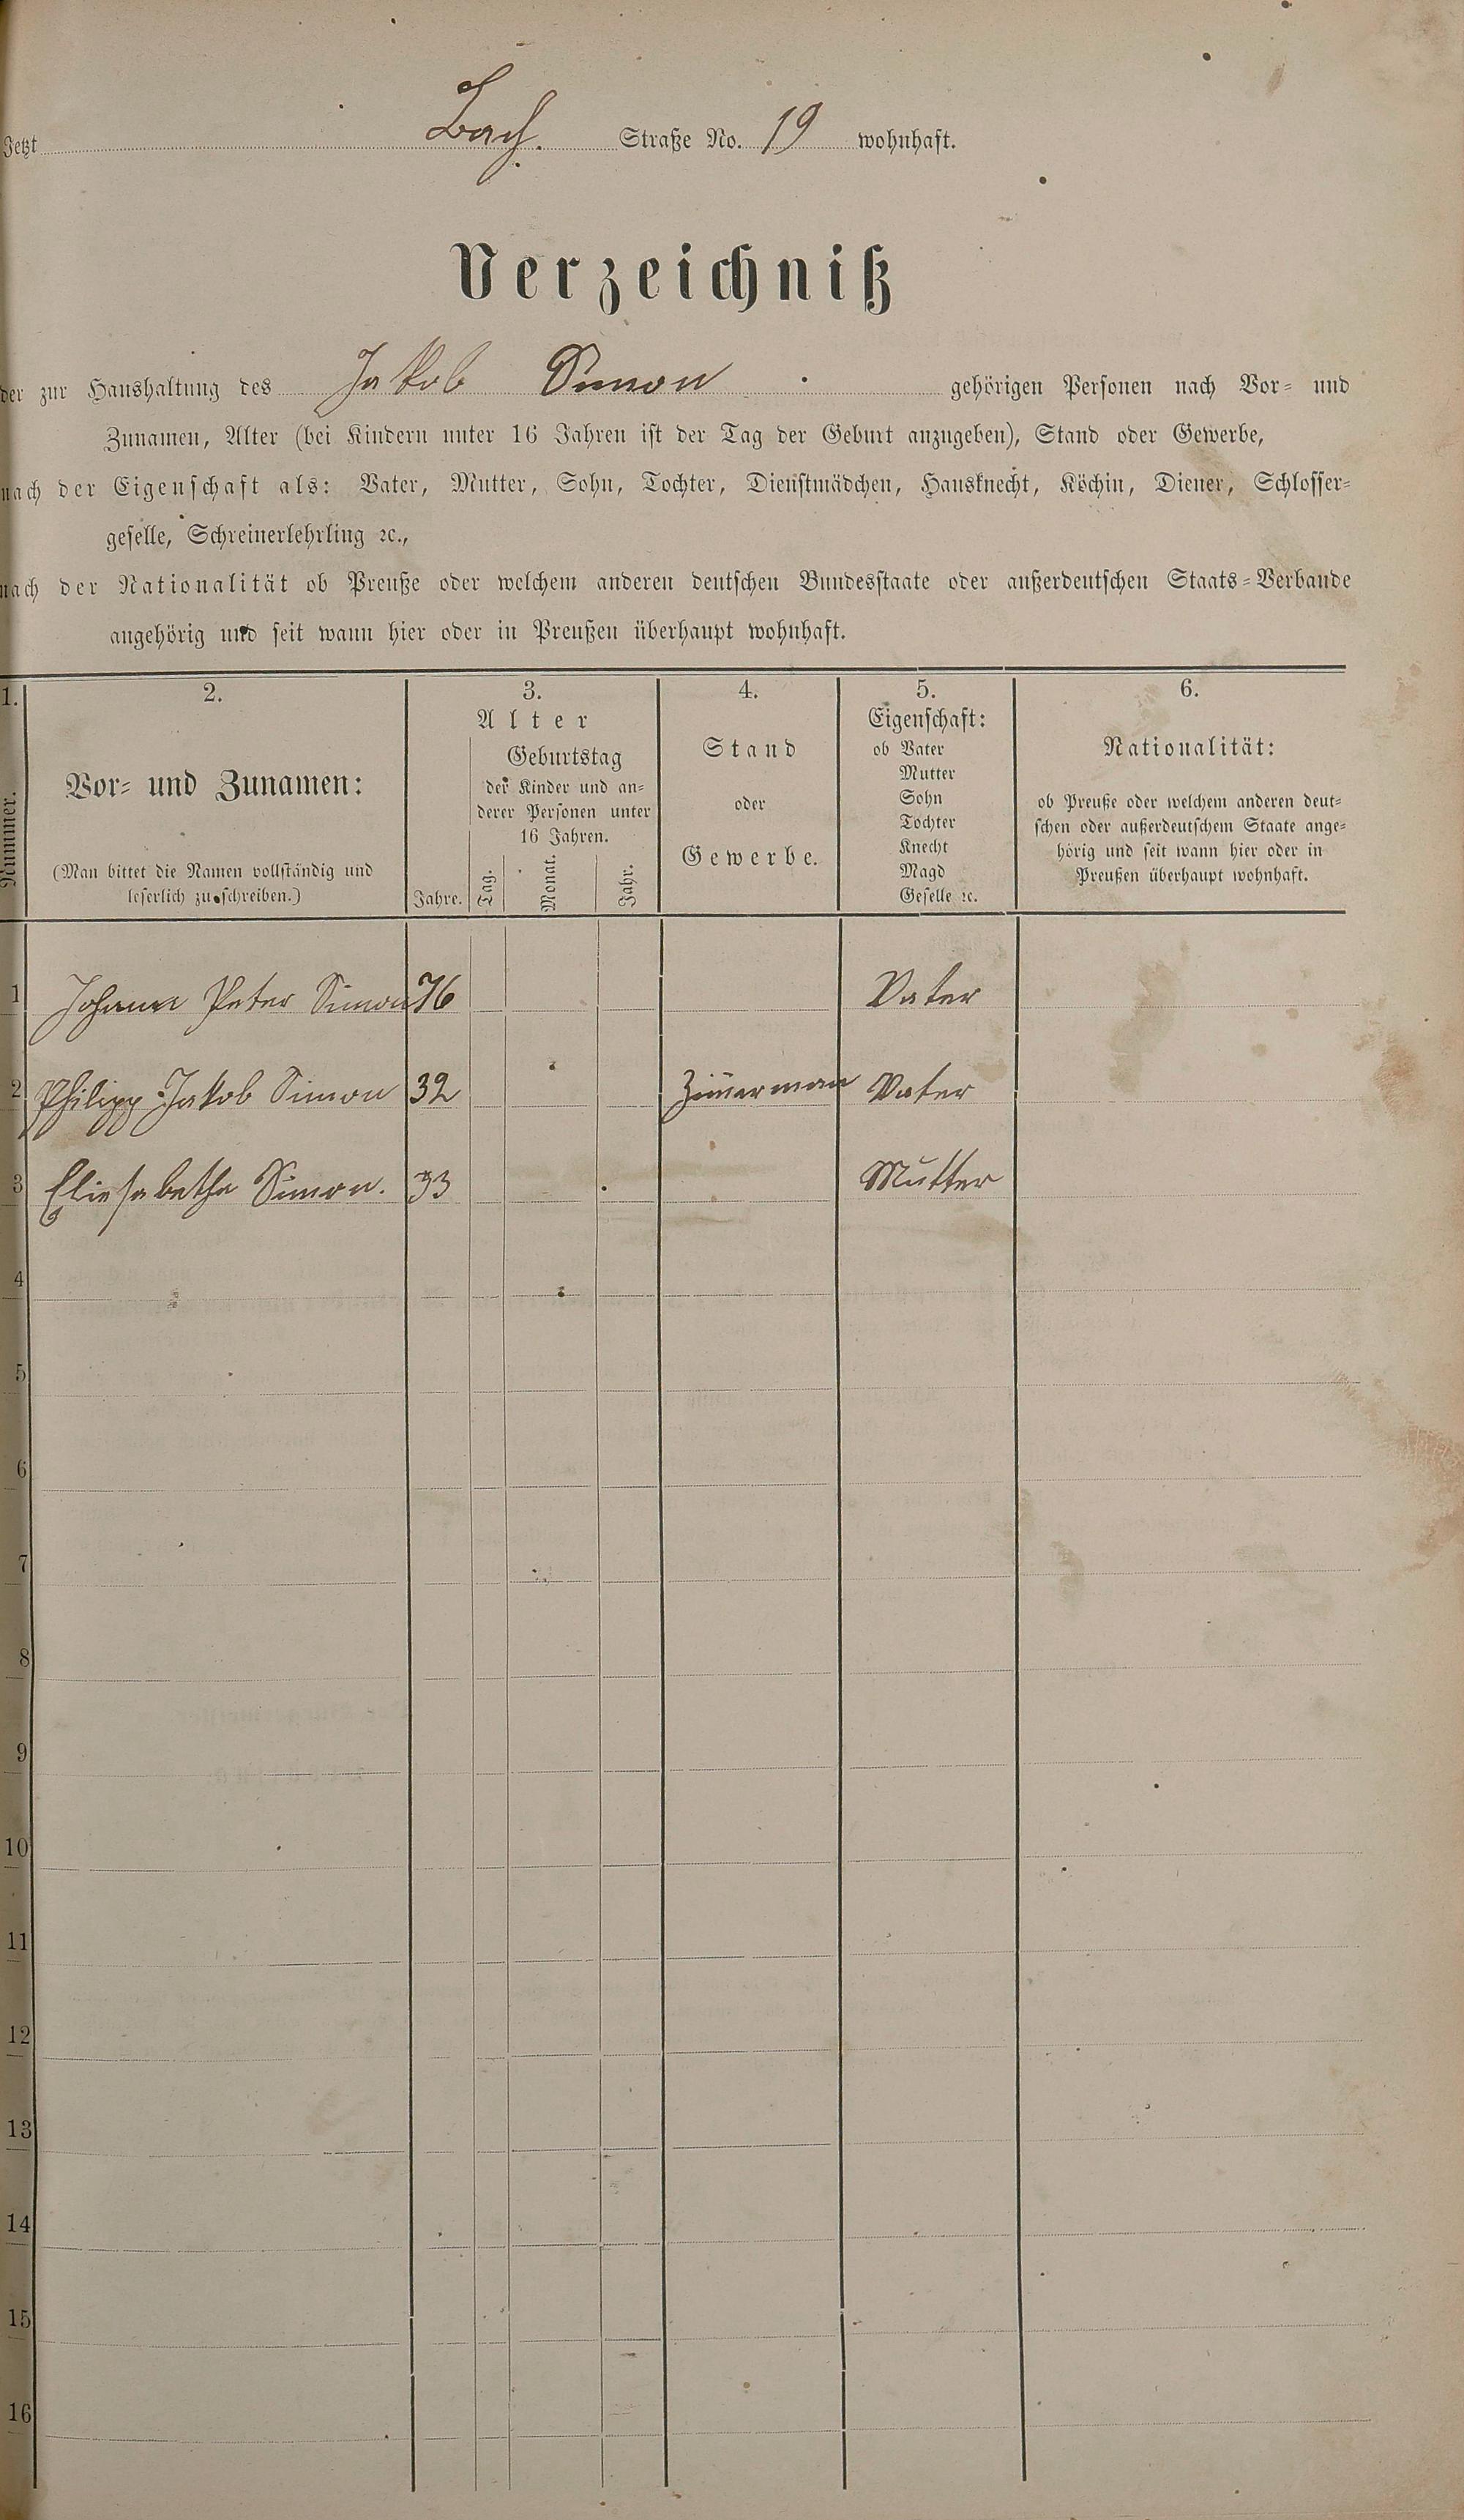 Jetzt Bach. Straße No. 19 wohnhaft.
Verzeichniß
der zur Haushaltung des Jakob Simon gehörigen Personen nach Vor- und
Zunamen, Alter (bei Kindern unter 16 Jahren ist der Tag der Geburt anzugeben), Stand oder Gewerbe,
nach der Eigenschaft als: Vater, Mutter, Sohn, Tochter, Dienstmädchen, Hausknecht, Köchin, Diener, Schlosser-
geselle, Schreinerlehrling ꝛc.,
nach der Nationalität ob Preuße oder welchem anderen deutschen Bundesstaate oder außerdeutschen Staats-Verbande
angehörig und seit wann hier oder in Preußen überhaupt wohnhaft.
1.
Nummer.
2.
Vor- und Zunamen:
(Man bittet die Namen vollständig und
leserlich zu schreiben.)
3.
Alter
Jahre.
Geburtstag
der Kinder und an-
derer Personen unter
16 Jahren.
Tag.
Monat.
Jahr.
4.
Stand
oder
Gewerbe.
5.
Eigenschaft:
ob Vater
Mutter
Sohn
Tochter
Knecht
Magd
Geselle ꝛc.
6.
Nationalität:
ob Preuße oder welchem anderen deut-
schen oder außerdeutschem Staate ange-
hörig und seit wann hier oder in
Preußen überhaupt wohnhaft.
1 Johann Peter Simon 76 Vater
2 Philipp Jakob Simon 32 Zim̅erman Vater
3 Eliesabetha Simon. 33 Mutter
4
5
6
7
8
9
10
11
12
13
14
15
16